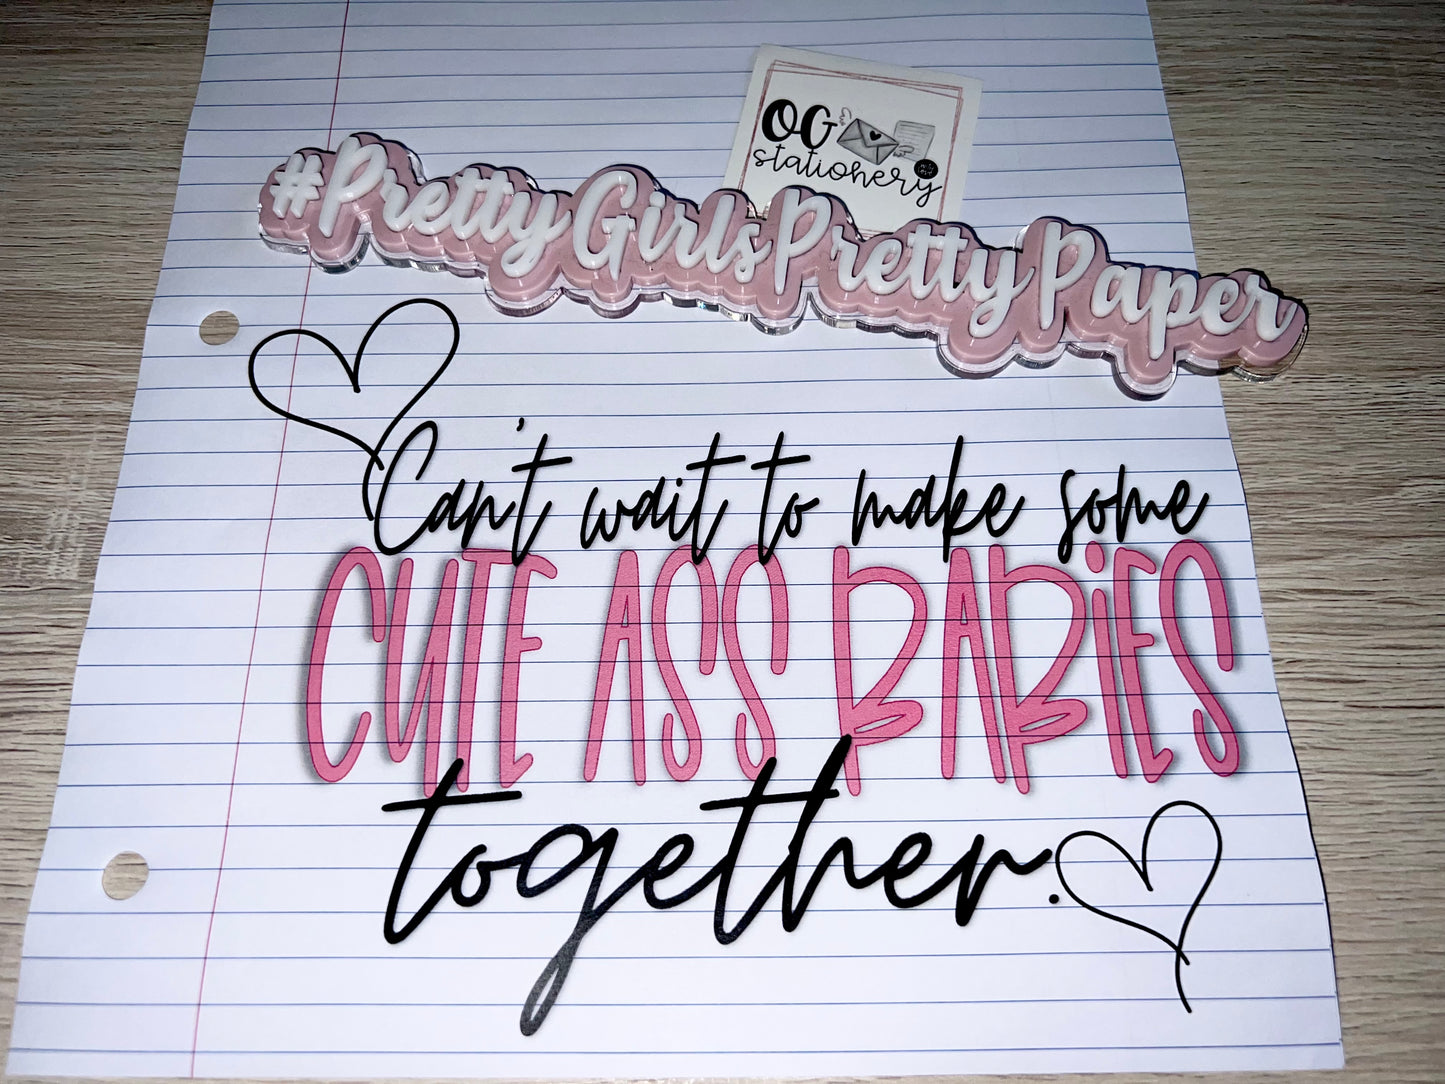 OG
stationery
#PrettyGirlsPrettyPaper
Can't wait to make some
CUTE ASS BABiES
together.